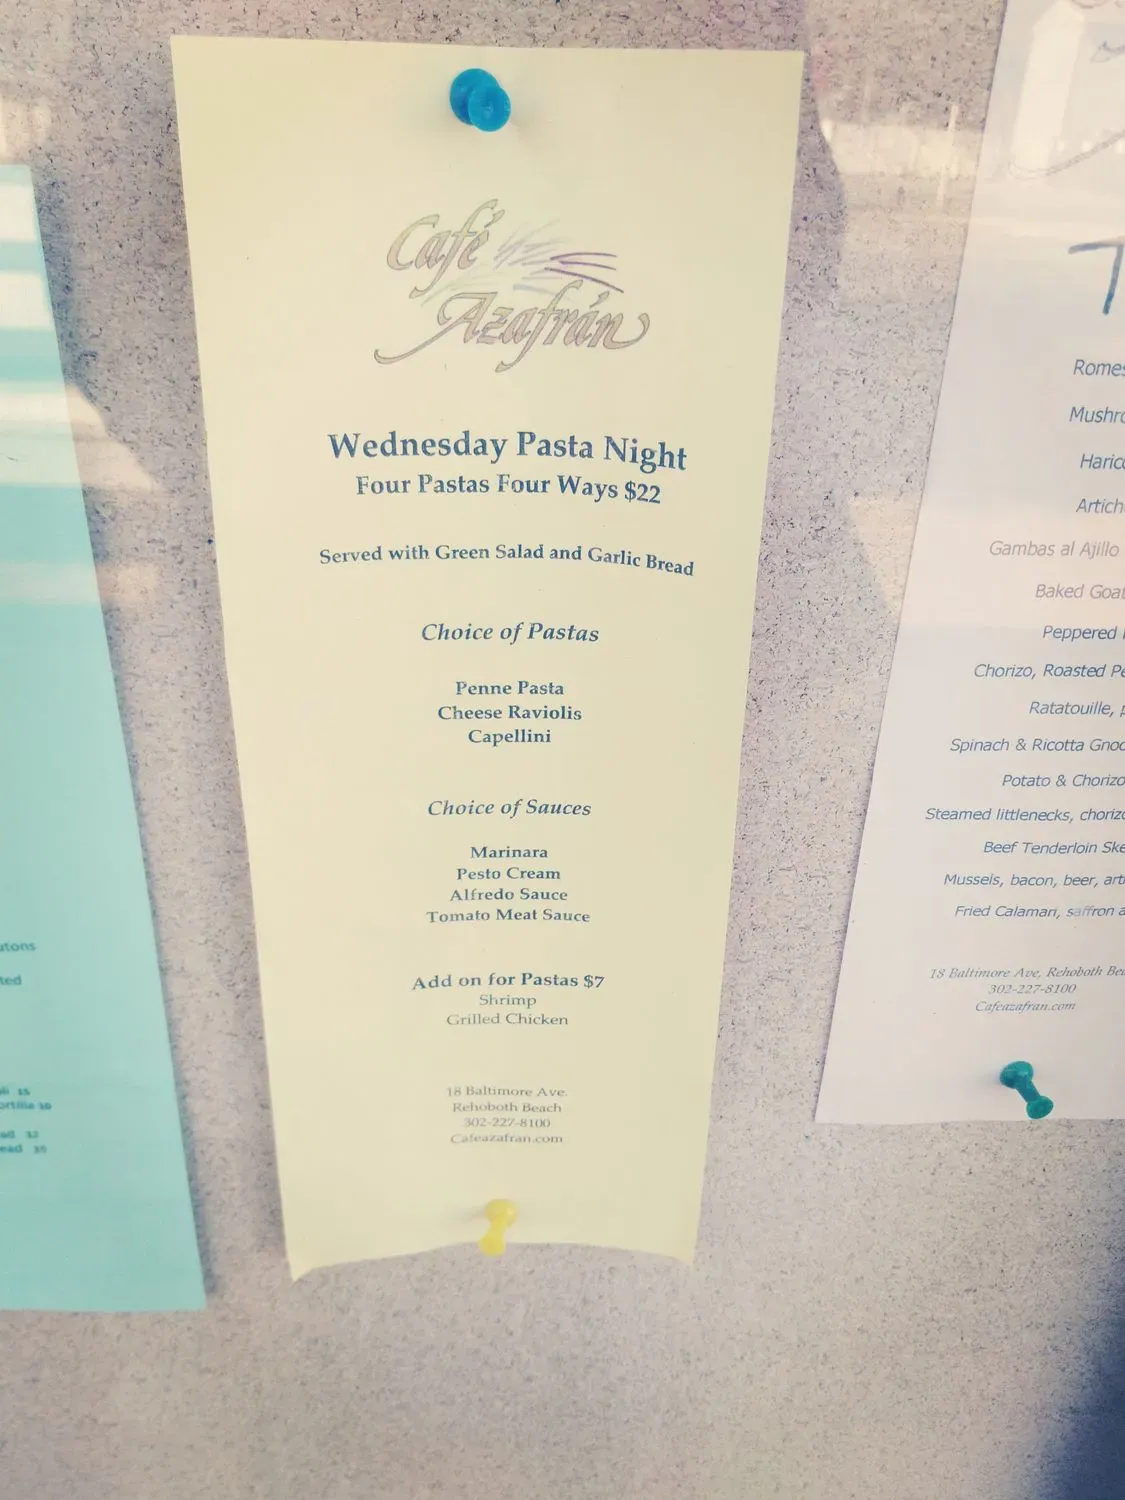 Café
Azafrán
Wednesday Pasta Night
Four Pastas Four Ways $22
Served with Green Salad and Garlic Bread
Choice of Pastas
Penne Pasta
Cheese Raviolis
Capellini
Choice of Sauces
Marinara
Pesto Cream
Alfredo Sauce
Tomato Meat Sauce
Add on for Pastas $7
Shrimp
Grilled Chicken
18 Baltimore Ave.
Rehoboth Beach
302-227-8100
Cafeazafran.com
T
Romes
Mushro
Haric
Artich
Gambas al Ajillo
Baked Goat
Peppered
Chorizo, Roasted Pe
Ratatouille,
Spinach & Ricotta Gnoc
Potato & Chorizo
Steamed littlenecks, chorizo
Beef Tenderloin Ske
Mussels, bacon, beer, arti
Fried Calamari, saffron a
18 Baltimore Ave, Rehoboth Bea
302-227-8100
Cafeazafran.com
utons
ted